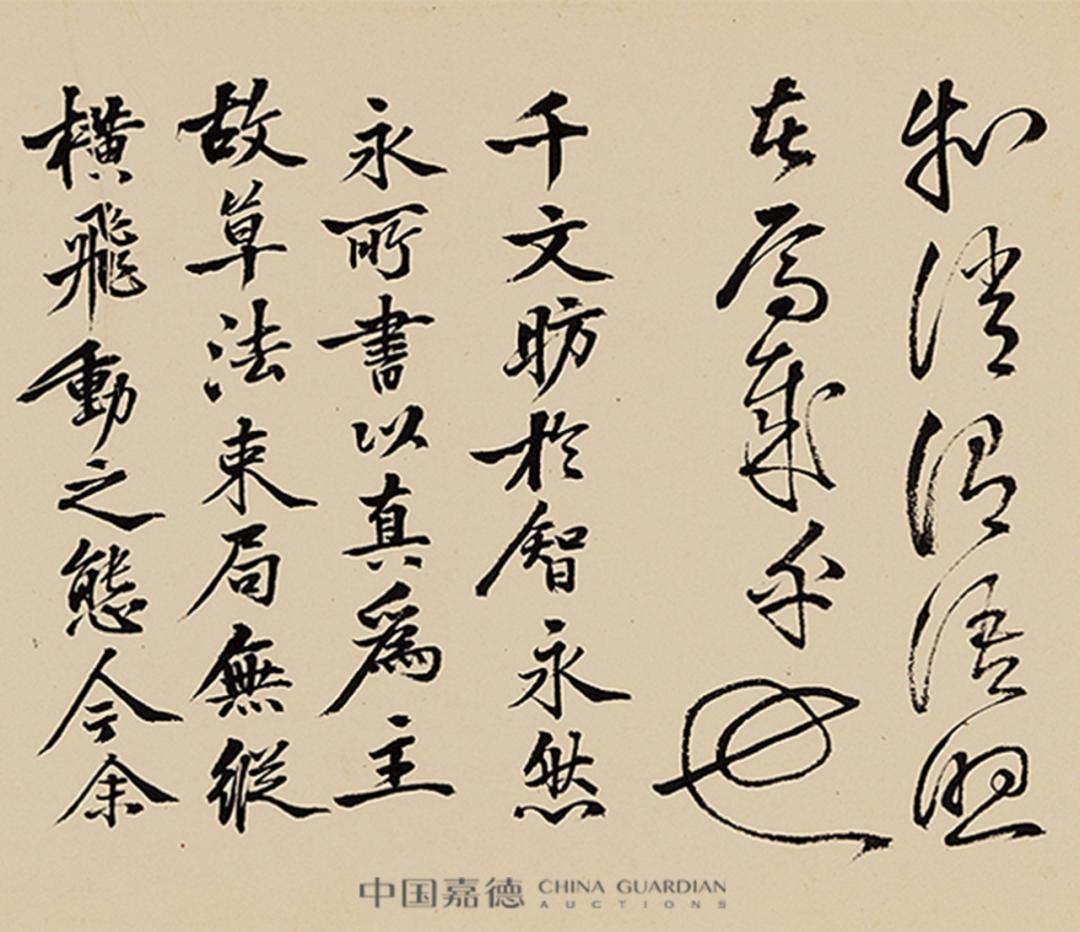 等誚謂語助
者焉哉乎也
千文昉於智永然
永所書以真爲主
故草法束局無縱
橫飛動之態今余
中国嘉德 CHINA GUARDIAN AUCTIONS